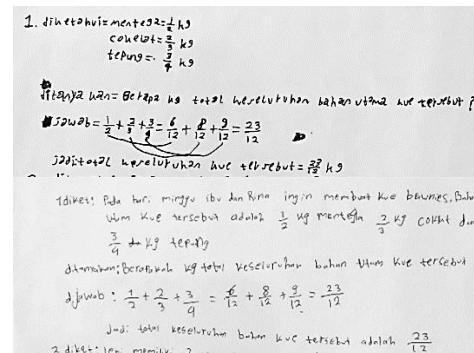 1. diketahui = mentega = 1/2 kg
cokelat = 2/3 kg
tepung = 3/4 kg
ditanyakan = Berapa kg total keseluruhan bahan utama kue tersebut ?
jawab = 1/2 + 2/3 + 3/4 = 6/12 + 8/12 + 9/12 = 23/12
jadi total keseluruhan kue tersebut = 23/12 kg
1 diket : Pada hari minggu ibu dan Rina ingin membuat kue
kue tersebut adalah 1/2 kg mentega 2/3 kg coklat
3/4 kg tepung
ditanyakan : Berapakah kg total keseluruhan bahan utam kue tersebut
dijawab : 1/2 + 2/3 + 3/4 = 6/12 + 8/12 + 9/12 = 23/12
Jadi total keseluruhan bahan kue tersebut adalah 23/12
2 diket :